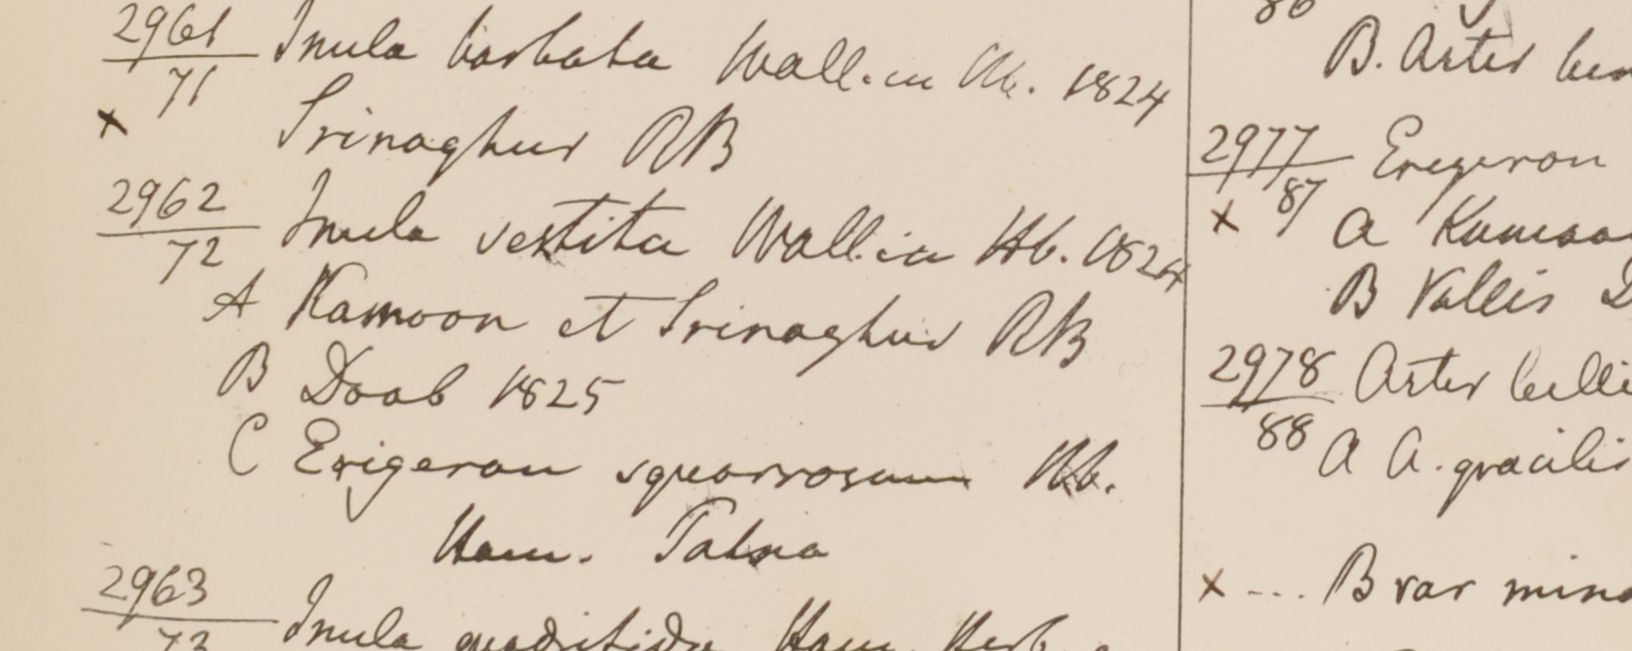 2961 Inula barbata Wall. in Hb. 1824
71
× Srinaghur RB
2962 Inula vestita Wall. in Hb. 1824
72
A Kamoon et Srinaghur RB
B Doab 1825
C Erigeron squarrosum Hb.
Ham. Patna
2963 Inula quadrifida Ham. Herb.
73
86
B. Aster
2977 Erigeron
87
× a Kamaon
B Vallis D
2978 Aster belli
88
a A. gracilis
× ... B var mino